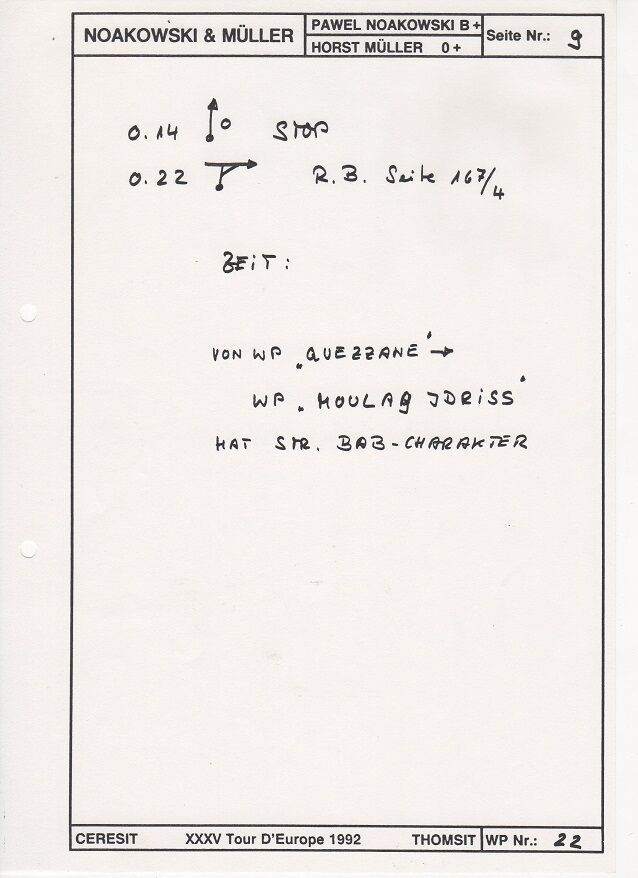 NOAKOWSKI & MÜLLER
PAWEL NOAKOWSKI B +
HORST MÜLLER 0 +
Seite Nr.: 9
0.14 0 STOP
0.22 R.B. Seite 167/4
ZEIT:
VON WP „QUEZZANE" →
WP „MOULAY JDRISS"
HAT STR. BAB-CHARAKTER
CERESIT XXXV Tour D'Europe 1992 THOMSIT WP Nr.: 22